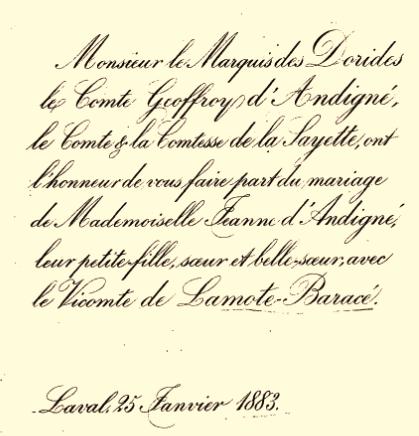 Monsieur le Marquis des Dorides
le Comte Geoffroy d'Andigné,
le Comte & la Comtesse de la Sayette, ont
l'honneur de vous faire part du mariage
de Mademoiselle Jeanne d'Andigné,
leur petite-fille, sœur et belle-sœur, avec
le Vicomte de Lamote-Baracé.
Laval, 25 Janvier 1883.